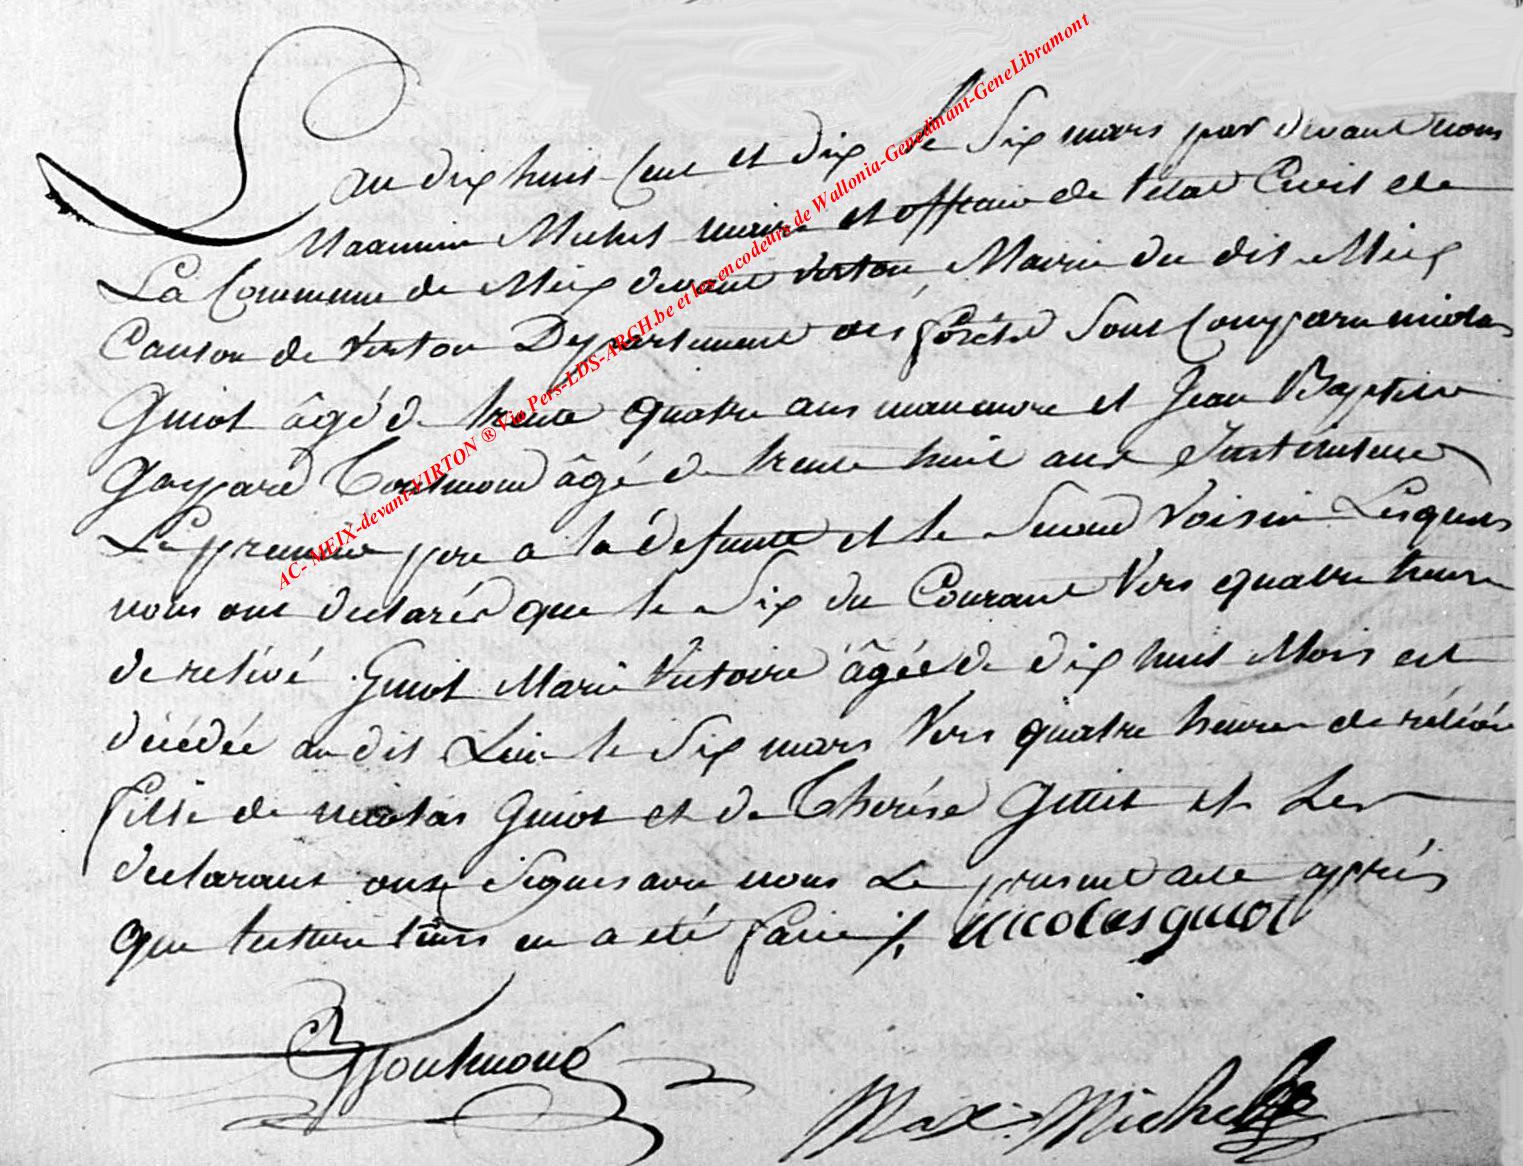 L'an dix huit Cent et dix le Six mars par devant nous
Maximin Michel maire et officier de l'état Civil de
La Commune de Meix devant virton Mairie du dit Meix
Canton de Virton Département des forêts Sont Comparu nicolas
Guiot âgé de trente quatre ans manoeuvre et Jean Baptiste
Gaspard âgé de trente huit ans Instituteur
Le premier pere a la défunte et le Second Voisin Lesquels
nous ont declarés que le Six du Courant Vers quatre heures
de relévé Guiot Marie Victoire âgée de dix huit Mois est
décédée au dit Lieu le Six mars Vers quatre heures de rélévée
fille de nicolas Guiot et de Therése Guiot et Les
declarant ont Signés avec nous Le present acte après
que lecture leurs en a été faite ./. nicolas guiot
Max: Michel
AC- MEIX-devant-VIRTON ® Via Pers-LDS-ARCH.be et les encodeurs de Wallonia-Genedinant-GeneLibramont